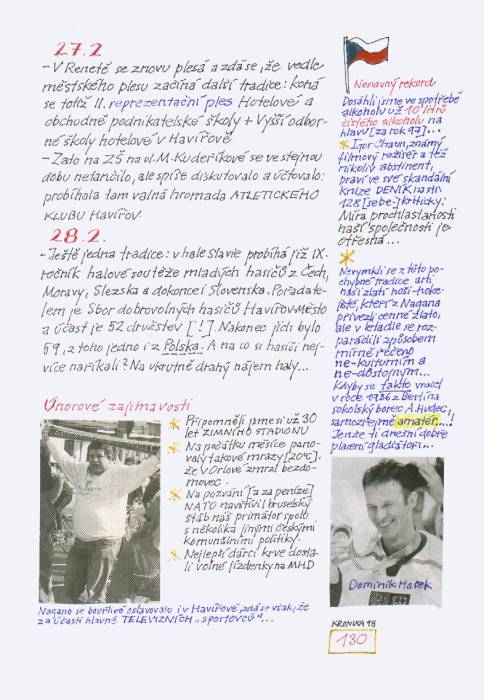 27.2
- V Renetě se znovu plesá a zdá se, že vedle
městského plesu začíná další tradice: koná
se totiž II. reprezentační ples Hotelové a
obchodně podnikatelské školy + Vyšší odbor-
né školy hotelové v Havířově
- Zato na ZŠ na ul. M. Kudeříkové se ve stejnou
dobu netančilo, ale spíše diskutovalo a účtovalo:
probíhala tam valná hromada ATLETICKÉHO
KLUBU Havířov.
28.2.
- Ještě jedna tradice: v hale Slavie probíhá již IX.
ročník halové soutěže mladých hasičů z Čech,
Moravy, Slezska a dokonce i Slovenska. Pořadate-
lem je Sbor dobrovolných hasičů Havířov-Město
a účast je 52 družstev [!]. Nakonec jich bylo
59, z toho jedno i z Polska. A na co si hasiči nej-
více naříkali? Na ukrutně drahý nájem haly...
Únorové zajímavosti
* Připomněli jsme si už 30
let ZIMNÍHO STADIONU
* Na počátku měsíce pano-
valy takové mrazy [20°C],
že v Orlové zmrzl bezdo-
movec.
* Na pozvání [a za peníze]
NATO navštívil bruselský
štáb náš primátor spolu
s několika jinými českými
komunálními politiky.
* Nejlepší dárci krve dosta-
li volné jízdenky na MHD
Nagano se bouřlivě oslavovalo i v Havířově, zdá se však, že
za účasti hlavně TELEVIZNÍCH „sportovců“...
Neslavný rekord
Dosáhli jsme ve spotřebě
alkoholu už 10 litrů
čistého alkoholu na
hlavu [za rok 97]...
* Igor Chaun, známý
filmový režisér a též
nikoliv abstinent,
praví ve své skandální
knize DENÍK na str.
128 [sebe-] kriticky:
Míra prochlastanosti
naší společnosti je
otřesná...
*
Nevymkli se z této po-
chybné tradice ani
naši zlatí hoši-hoke-
jisté, kteří z Nagana
přivezli cenné zlato,
ale v letadle se roz-
parádili způsobem
mírně řečeno
ne-kulturním a
ne-důstojným...
Kdyby se takto vracel
v roce 1936 z Berlína
sokolský borec A. Hudec,
samozřejmě amatér...!
Jenže ti dnešní dobře
placení gladiátoři...
Dominik Hašek
KRONIKA 98
130